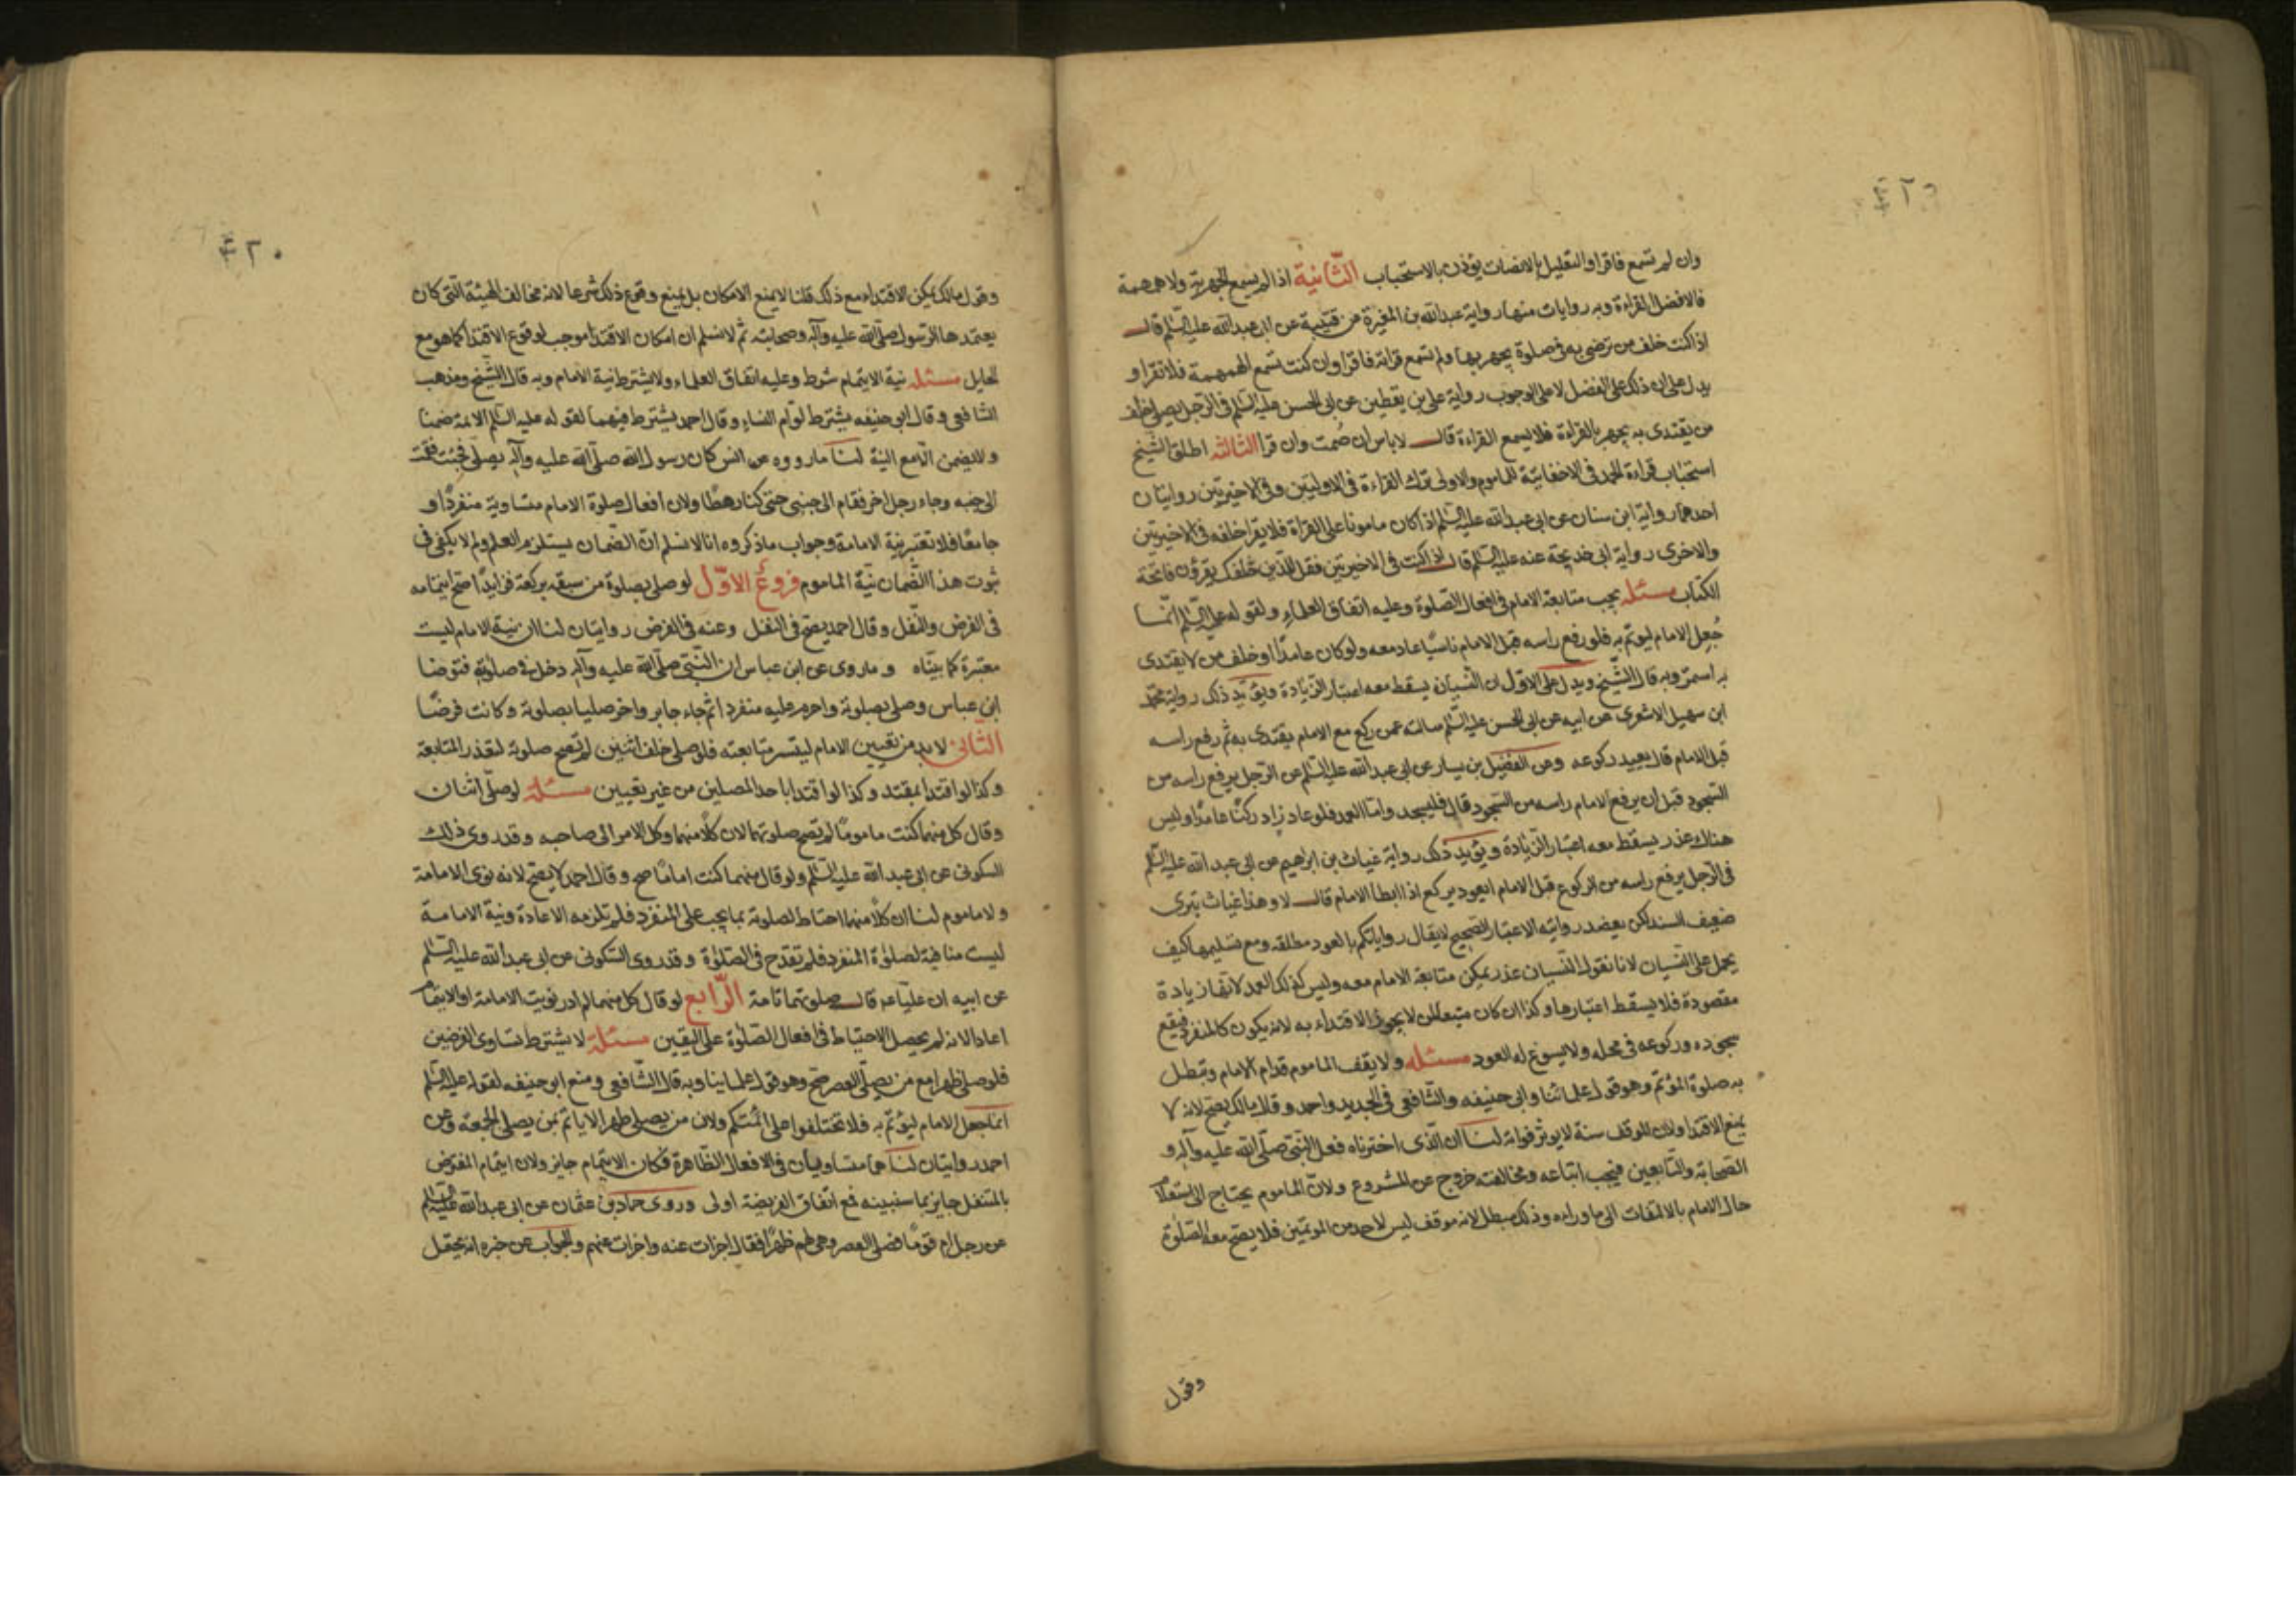 وان لم تسمع فاقرا والتعليل بالانصات يؤذن بالاستحباب الثانية اذا لم يسمع الجهرية ولا همهمة
فالافضل القراءة وبه روايات منها رواية عبدالله بن المغيرة عن قتيبة عن ابى عبدالله عليه السلم قال
اذا كنت خلف من ترضى به فى صلوة يجهر بها ولم تسمع قراته فاقرا وان كنت تسمع الهمهمة فلا تقرا و
يدل على ان ذلك على الفضل لا على الوجوب رواية على بن يقطين عن ابى الحسن عليه السلم فى الرجل يصلى خلف
من يقتدى به يجهر بالقراءة فلا يسمع القراءة قال لا باس ان صمت وان قرا الثالثه اطلق الشيخ
استحباب قراءة الحمد فى الاخفاتية للماموم والاولى ترك القراءة فى الاوليين وفى الاخيرتين روايتان
احدهما رواية ابن سنان عن ابى عبدالله عليه السلم اذا كان مامونا على القراة فلا يقرا خلفه فى الاخيرتين
والاخرى رواية ابى خديجة عنه عليه السلم قال اذا كنت فى الاخيرتين فقل للذين خلفك يقرؤن فاتحة
الكتاب مسئله يجب متابعة الامام فى افعال الصلوة وعليه اتفاق العلماء ولقوله عليه السلم انما
جعل الامام ليوتم به فلو رفع راسه قبل الامام ناسيا عاد معه ولو كان عامدا او خلف من لا يقتدى
به استمر وبه قال الشيخ ويدل على الاول ان النسيان يسقط معه اعتبار الزيادة ويؤيد ذلك رواية محمد
ابن سهيل الاشعرى عن ابيه عن ابى الحسن عليه السلم سالته عمن ركع مع الامام يقتدى به ثم رفع راسه
قبل الامام قال يعيد ركوعه وعن الفضيل بن يسار عن ابى عبدالله عليه السلم عن الرجل يرفع راسه من
السجود قبل ان يرفع الامام راسه من السجود قال فليسجد واما العمد فلو عاد زاد ركنا عامدا وليس
هناك عذر يسقط معه اعتبار الزيادة ويؤيد ذلك رواية غياث بن ابراهيم عن ابى عبدالله عليه السلم
فى الرجل يرفع راسه من الركوع قبل الامام ايعود يركع اذا ابطا الامام قال لا وهذا غياث بترى
ضعيف السند لكن يعضد روايته الاعتبار الصحيح لا يقال رواياتكم بالعود مطلقه ومع تسليمها كيف
يحمل على النسيان لانا نقول النسيان عذر يمكن متابعة الامام معه وليس كذلك العمد لانها زيادة
مقصودة فلا يسقط اعتبارها وكذا ان كان متبعا لمن لا يجوز الاقتداء به لانه يكون كالمنفرد فيقع
سجوده وركوعه فى محله ولا يسوغ له العود مسئله ولا يقف الماموم قدام الامام وتبطل
به صلوة المؤتم وهو قول علمائنا وابى حنيفه والشافعى فى الجديد واحمد وقال مالك يصح لانه لا
يمنع الاقتدا ولان الموقف سنة لا يوثر فواته لنا ان الذى اخترناه فعل النبى صلى الله عليه وآله و
الصحابة والتابعين فيجب اتباعه ومخالفته خروج عن المشروع ولان الماموم يحتاج الى استعلام
حال الامام بالالتفات الى ما وراءه وذلك مبطل لانه موقف ليس لاحد من الموتمين فلا يصح معه الصلوة
وقول
٤٢٠
وقول مالك يمكن الاقتداء مع ذلك قلنا لا يمنع الامكان بل يمنع وقوع ذلك شرعا لانه مخالف للهيئة التى كان
يعتمدها الرسول صلى الله عليه وآله وصحابته ثم لا نسلم ان امكان الاقتدا موجب لوقوع الاقتدا كما هو مع
الحايل مسئله نية الايتمام شرط وعليه اتفاق العلماء ولا يشترط نية الامام وبه قال الشيخ ومذهب
الشافعى وقال ابو حنيفه يشترط لو ام النساء وقال احمد يشترط فيهما لقوله عليه السلم الائمة ضمنا
ولا يضمن الا مع النية لنا ما رووه عن انس كان رسول الله صلى الله عليه وآله يصلى فجئت فقمت
الى جنبه وجاء رجل اخر فقام الى جنبى حتى كنا رهطا ولان افعال صلوة الامام متساوية منفردا و
جامعا فلا تعتبر نية الامامة وجواب ما ذكروه انا لا نسلم ان الضمان يستلزم العلم ولم لا يكفى فى
ثبوت هذا الضمان نية الماموم فروع الاول لو صلى بصلوة من سبقه بركعة فزايدا صح ايتمامه
فى الفرض والنفل وقال احمد يصح فى النفل وعنه فى الفرض روايتان لنا ان نية الامام ليست
معتبرة كما بيناه وما روى عن ابن عباس ان النبى صلى الله عليه وآله دخل فى صلوته فتوضا
ابن عباس وصلى بصلوته واحرم عليه منفردا ثم جاء جابر واخر صليا بصلوته وكانت فرضا
الثانى لا بد من تعيين الامام ليتسر متابعته فلو صلى خلف اثنين لم تصح صلوته لتعذر المتابعة
وكذا لو اقتدا بمقتد وكذا لو اقتدا باحد المصلين من غير تعيين مسئلة لو صلى اثنان
وقال كل منهما كنت ماموما لم تصح صلوتهما لان كلا منهما وكل الامر الى صاحبه وقد روى ذلك
السكونى عن ابى عبدالله عليه السلم ولو قال منهما كنت اماما صح وقال احمد لا يصح لانه نوى الامامة
ولا ماموم لنا ان كلا منهما احتاط لصلوته بما يجب على المنفرد فلم تلزمه الاعادة ونية الامامة
ليست منافية لصلوة المنفرد فلم تقدح فى الصلوة وقد روى السكونى عن ابى عبدالله عليه السلم
عن ابيه ان عليا عم قال صلوتهما تامة الرابع لو قال كل منهما لم ادر نويت الامامة او الايتمام
اعادا لانه لم يحصل الاحتياط فى افعال الصلوة على اليقين مسئلة لا يشترط تساوى الفرضين
فلو صلى ظهرا مع من يصلى العصر صح وهو قول علماينا وبه قال الشافعى ومنع ابو حنيفه لقوله عليه السلم
انما جعل الامام ليؤتم به فلا تختلفوا على ائمتكم ولان من يصلى ظهرا لا ياتم بمن يصلى الجمعة وعن
احمد روايتان لنا هما متساويان فى الافعال الظاهرة فكان الايتمام جايز ولان ايتمام المفترض
بالمتنفل جايز بما سنبينه فمع اتفاق الفريضة اولى وروى حماد بن عثمان عن ابى عبدالله عليه السلم
عن رجل ام قوما فصلى العصر وهى لهم ظهرا فقال اجزات عنه واجزات عنهم والجواب عن خبره انه يحتمل